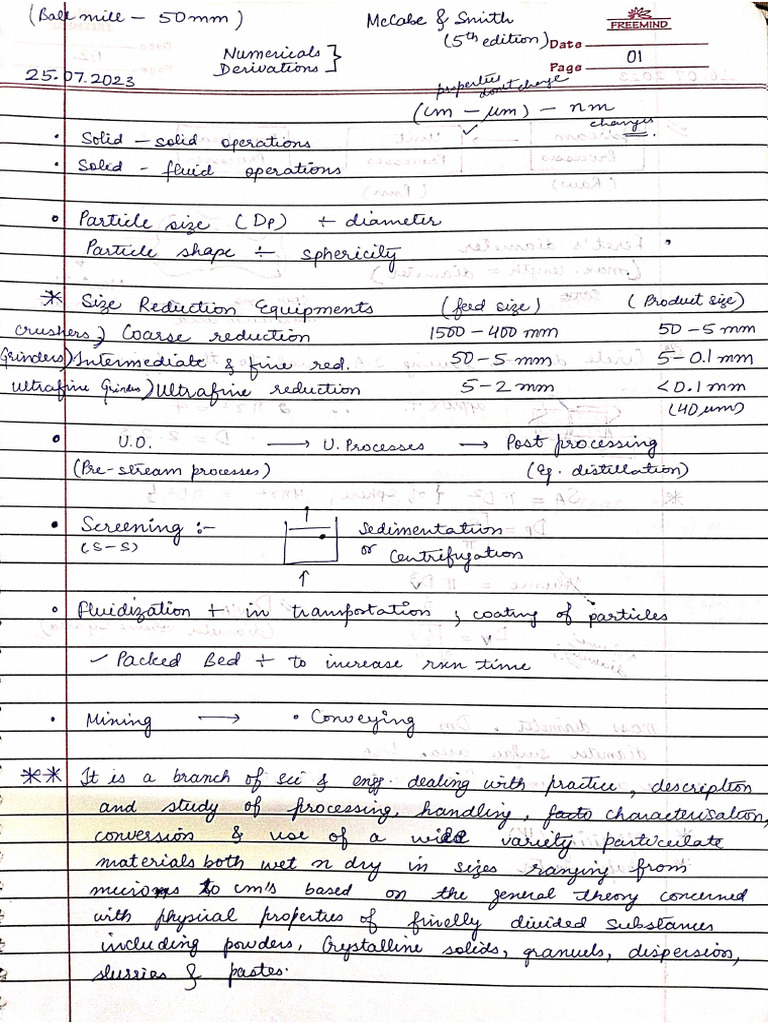 (Ball mill - 50mm)
McCabe & Smith
(5th edition)
FREEMIND
Date
Page 01
Numericals
Derivations }
25.07.2023
properties don't change
(cm - μm) - nm
✓ changes.
• Solid - solid operations
• Solid - fluid operations
• Particle size (Dp) ÷ diameter
Particle shape ÷ sphericity
* Size Reduction Equipments (feed size) (Product size)
crushers) Coarse reduction 1500 - 400 mm 50 - 5 mm
Grinders) Intermediate & fine red. 50 - 5 mm 5 - 0.1 mm
ultrafine Grinders) Ultrafine reduction 5 - 2 mm <0.1 mm
(40 μm)
• U.O. → U. Processes → Post processing
(Pre-stream processes) (Eg. distillation)
• Screening :- Sedimentation
(S-S) or Centrifugation
• Fluidization ÷ in transportation, coating of particles
✓ Packed Bed ÷ to increase rxn time
• Mining → • Conveying
** It is a branch of sci & engg. dealing with practice, description
and study of processing, handling, characterisation,
conversion & use of a wide variety particulate
materials both wet n dry in sizes ranging from
microns to cm's based on the general theory concerned
with physical properties of finelly divided substances
including powders, Crystalline solids, granuels, dispersion,
slurries & pastes.